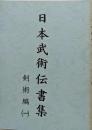 日本武術伝書集
剣術編(一)